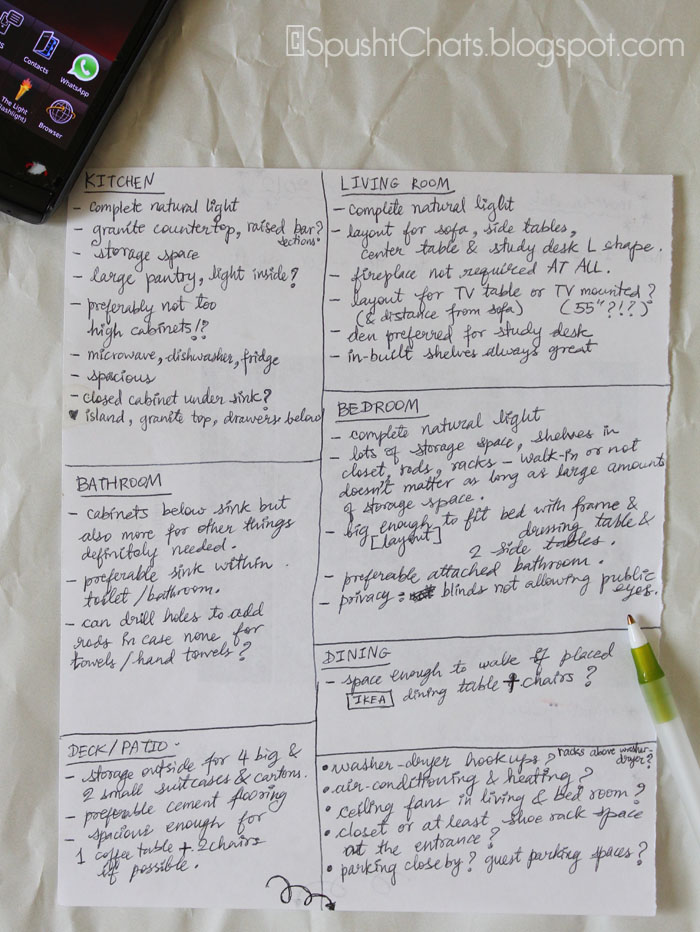 SpushtChats.blogspot.com
Contacts
WhatsApp
The Light
Browser
KITCHEN
- complete natural light
- granite countertop, raised bar?
sections?
- storage space
- large pantry, light inside?
- preferably not too
high cabinets!?
- microwave, dishwasher, fridge
- spacious
- closed cabinet under sink?
island, granite top, drawers below
LIVING ROOM
- complete natural light
- layout for sofa, side tables,
center table & study desk L shape.
- fireplace not required AT ALL.
- layout for TV table or TV mounted?
(& distance from sofa) (55"?!?)
- den preferred for study desk
- in-built shelves always great
BEDROOM
- complete natural light
- lots of storage space, shelves in
closet, rods, racks - walk-in or not
doesn't matter as long as large amounts
of storage space.
- big enough to fit bed with frame &
[layout] dressing table &
2 side tables.
- preferable attached bathroom.
- privacy: blinds not allowing public
eyes.
BATHROOM
- cabinets below sink but
also more for other things
definitely needed.
- preferable sink within
toilet/bathroom.
- can drill holes to add
rods in case none for
towels/hand towels?
DINING
- space enough to walk if placed
IKEA dining table + chairs?
DECK/PATIO
- storage outside for 4 big &
2 small suitcases & cartons.
- preferable cement flooring
- spacious enough for
1 coffee table + 2 chairs
if possible.
• washer-dryer hookups? racks above washer-
dryer?
• air-conditioning & heating?
• ceiling fans in living & bed room?
• closet or at least shoe rack space
at the entrance?
• parking close by? guest parking spaces?